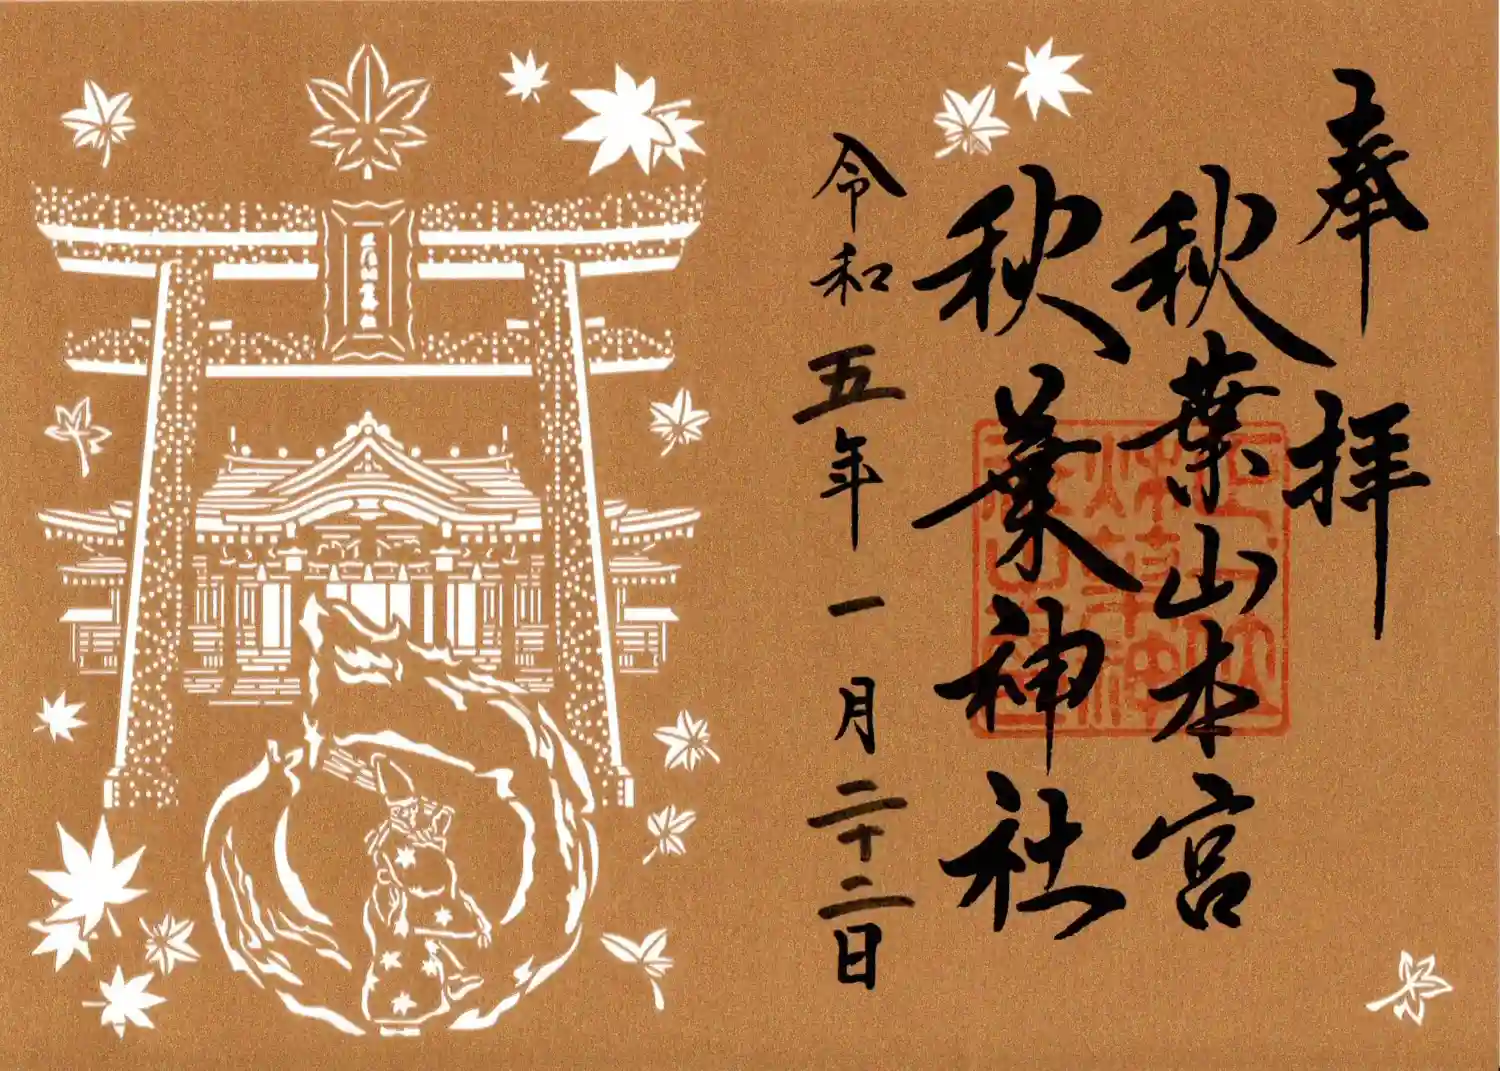 奉拝
秋葉山本宮
秋葉神社
令和五年一月二十二日